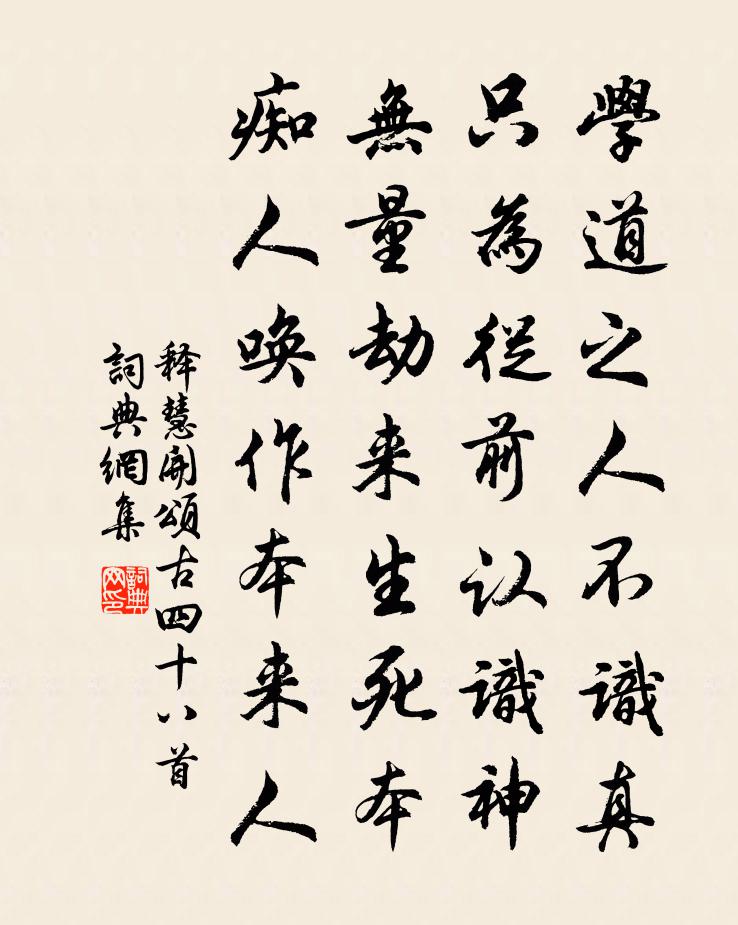 學道之人不識真
只為從前认識神
無量劫来生死本
痴人唤作本来人
释慧開頌古四十八首
詞典網集
詞典
网印